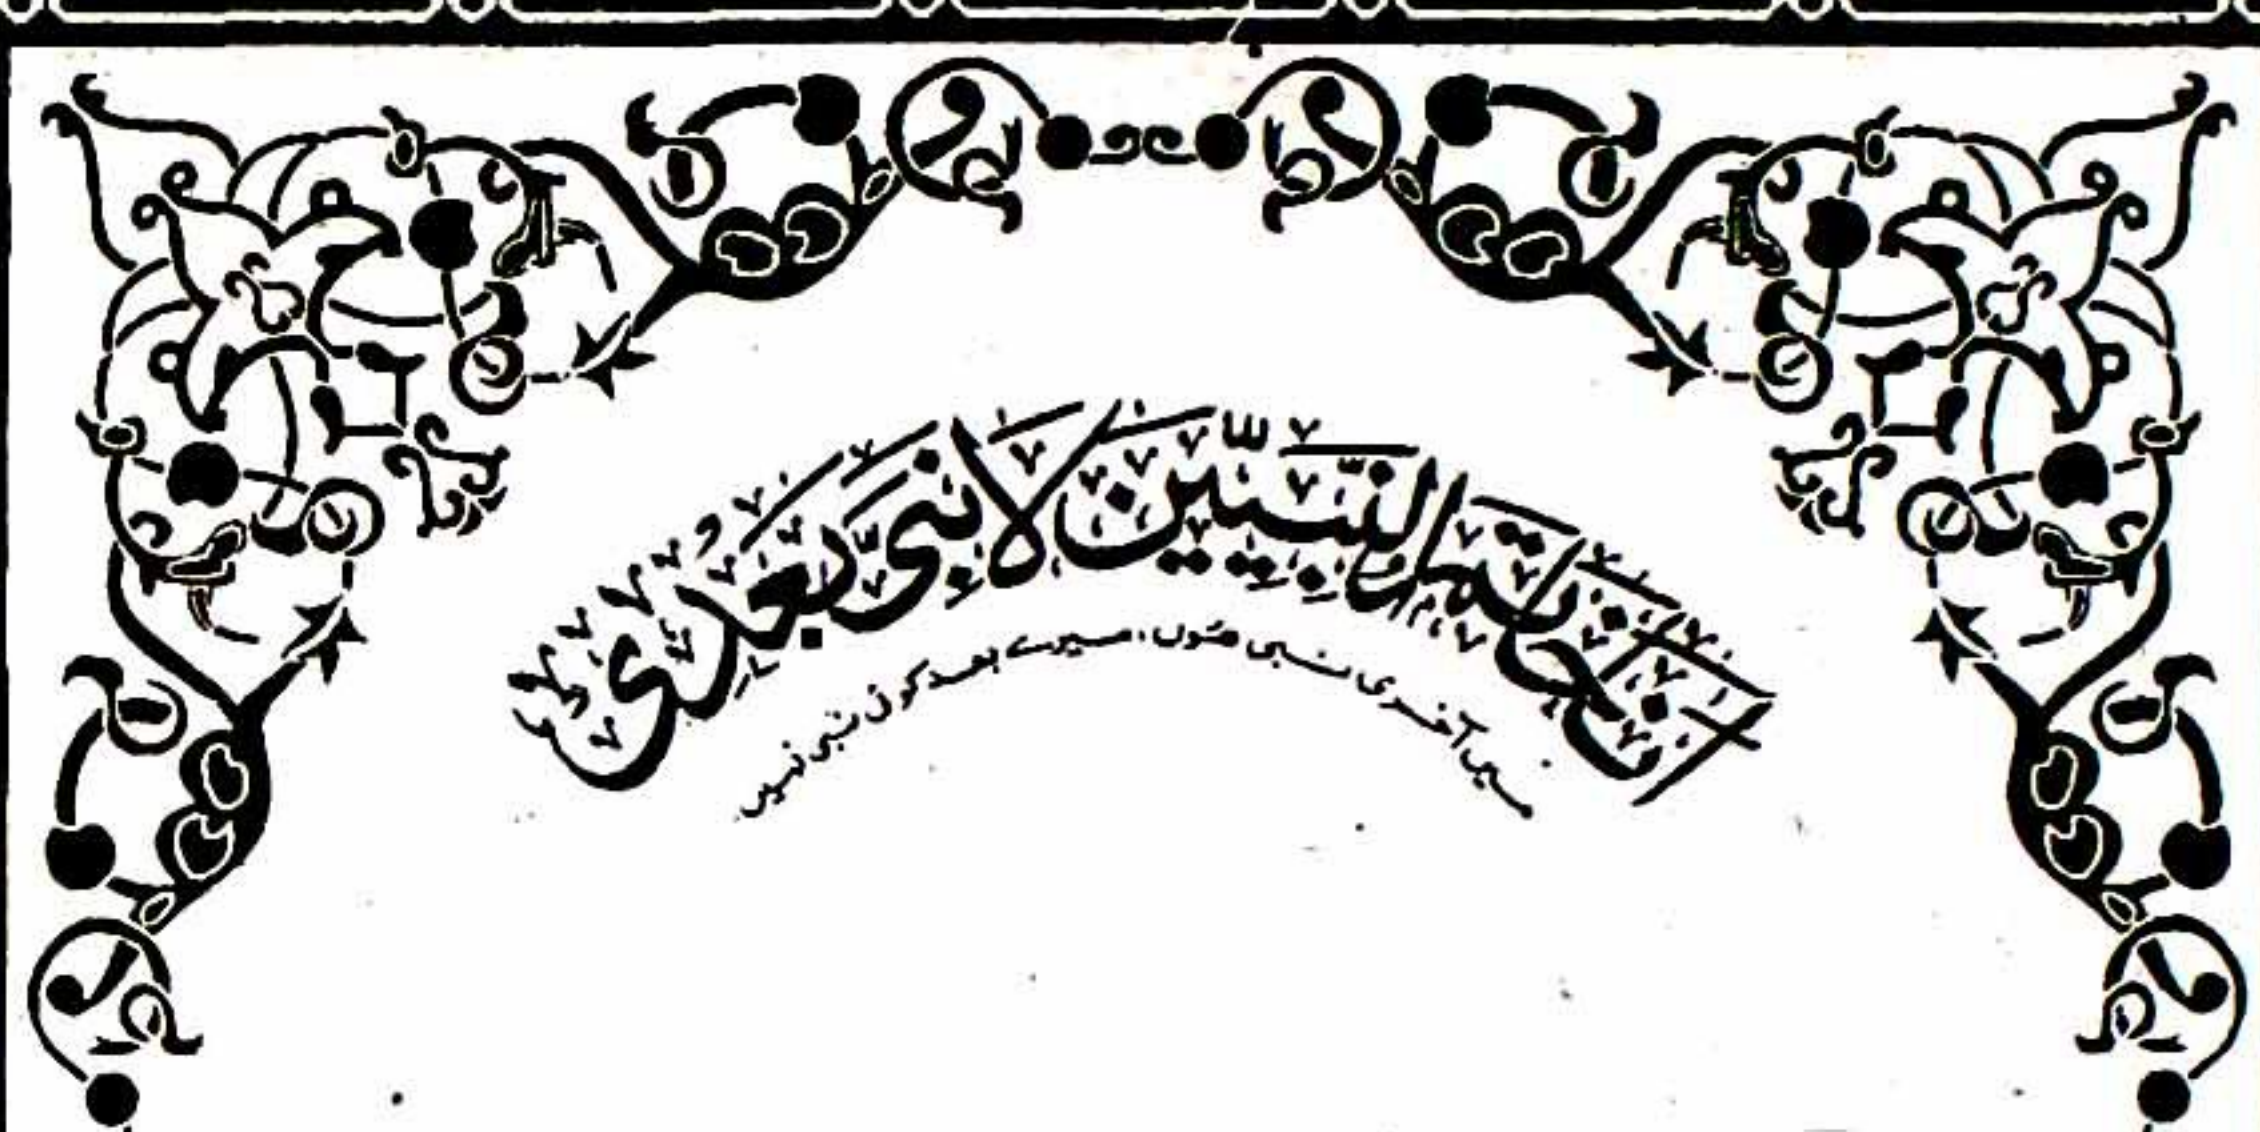 انا خاتم النبیین لا نبی بعدی
میں آخری نبی ہوں، میرے بعد کوئی نبی نہیں